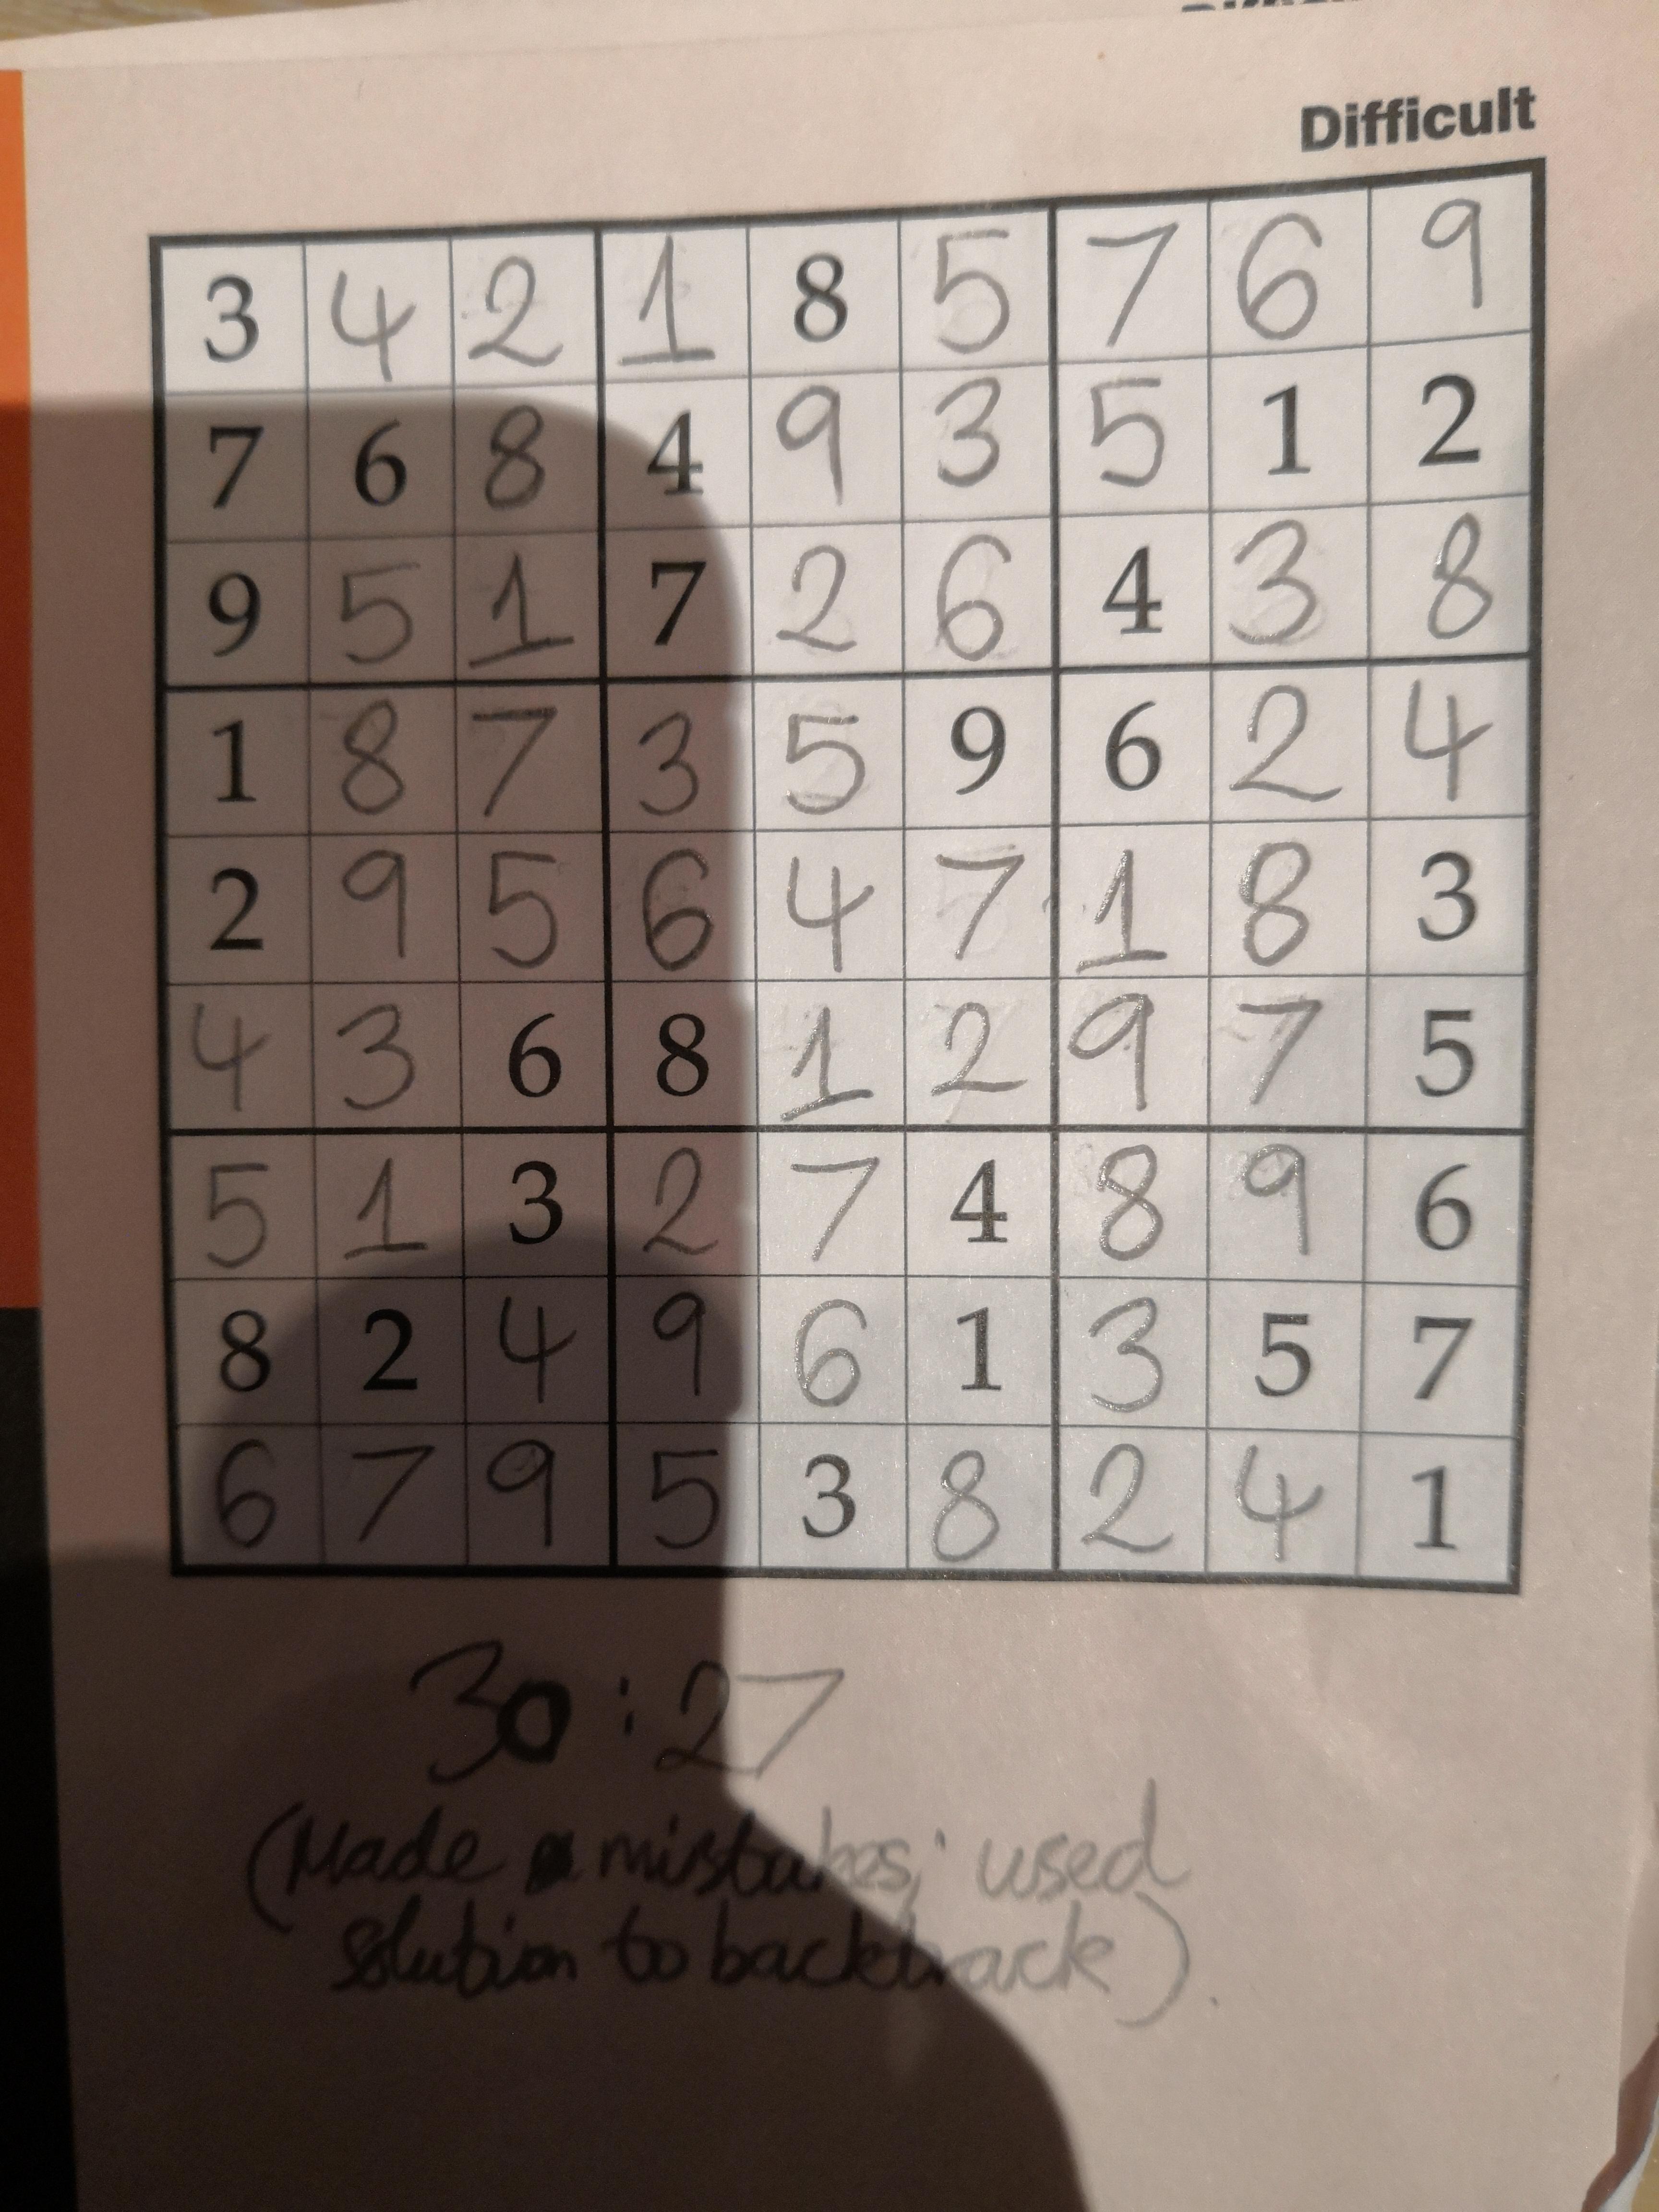 Difficult
3 4 2 1 8 5 7 6 9
7 6 8 4 9 3 5 1 2
9 5 1 7 2 6 4 3 8
1 8 7 3 5 9 6 2 4
2 9 5 6 4 7 1 8 3
4 3 6 8 1 2 9 7 5
5 1 3 2 7 4 8 9 6
8 2 4 9 6 1 3 5 7
6 7 9 5 3 8 2 4 1
30:27
(Made mistakes; used
solution to backtrack).